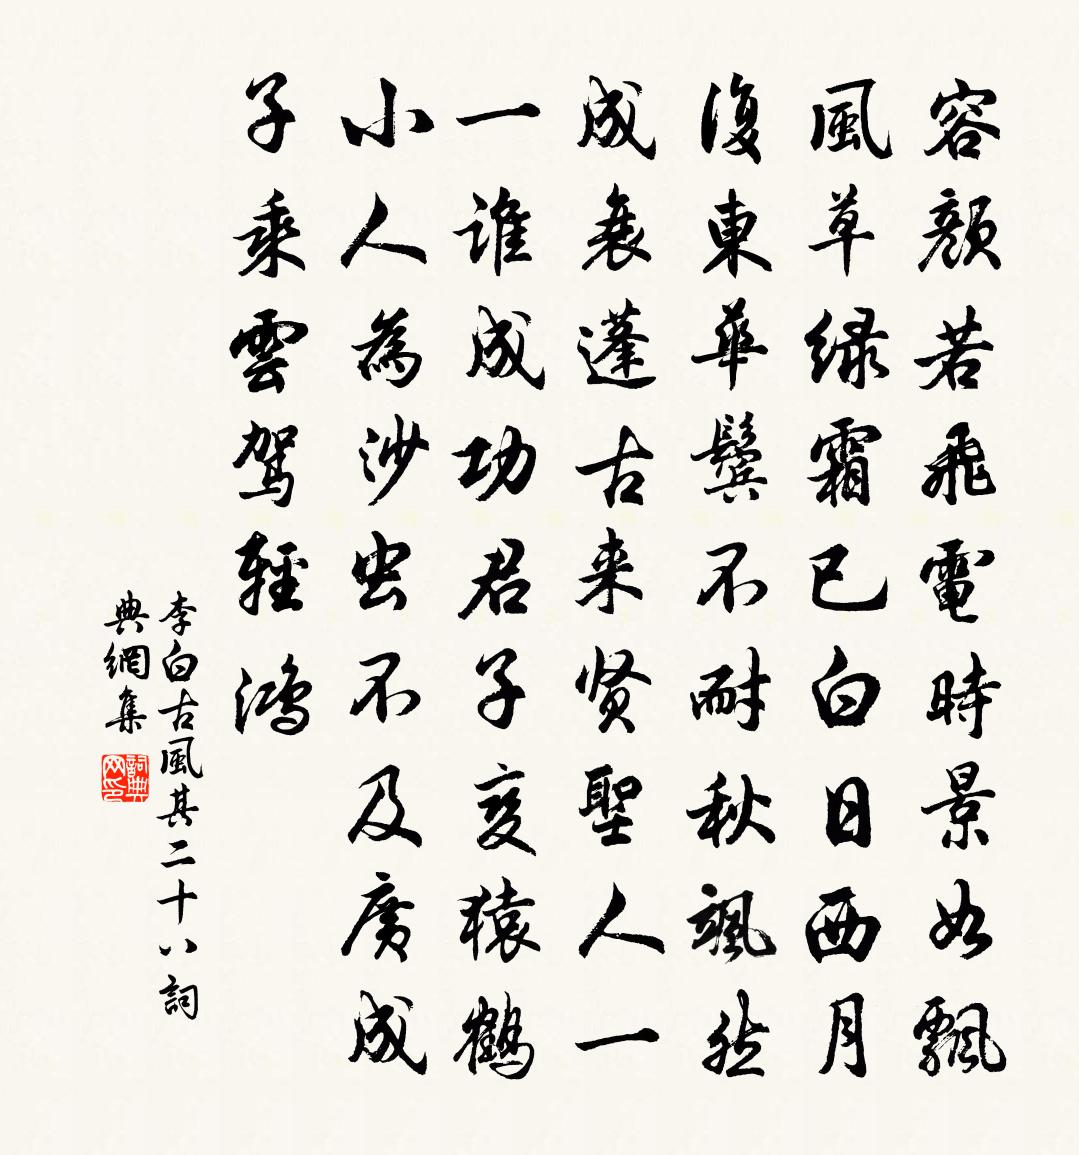 容顏若飛電時景如飄
風草綠霜已白日西月
復東華鬢不耐秋颯然
成衰蓬古来賢聖人一
一誰成功君子變猿鶴
小人為沙虫不及廣成
子乘雲駕輕鴻
李白古風其二十八詞
典網集
詞典网印